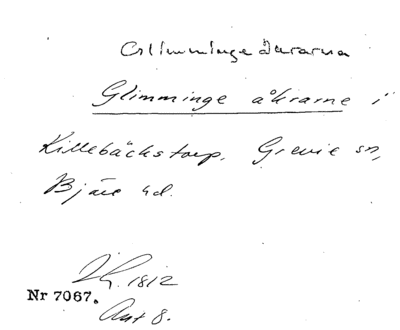 Glimmingeåkrarna
Glimminge åkrarne i
Killebäckstorp, Grevie sn,
Bjäre hd.
1812
Nr 7067.
Akt 8.